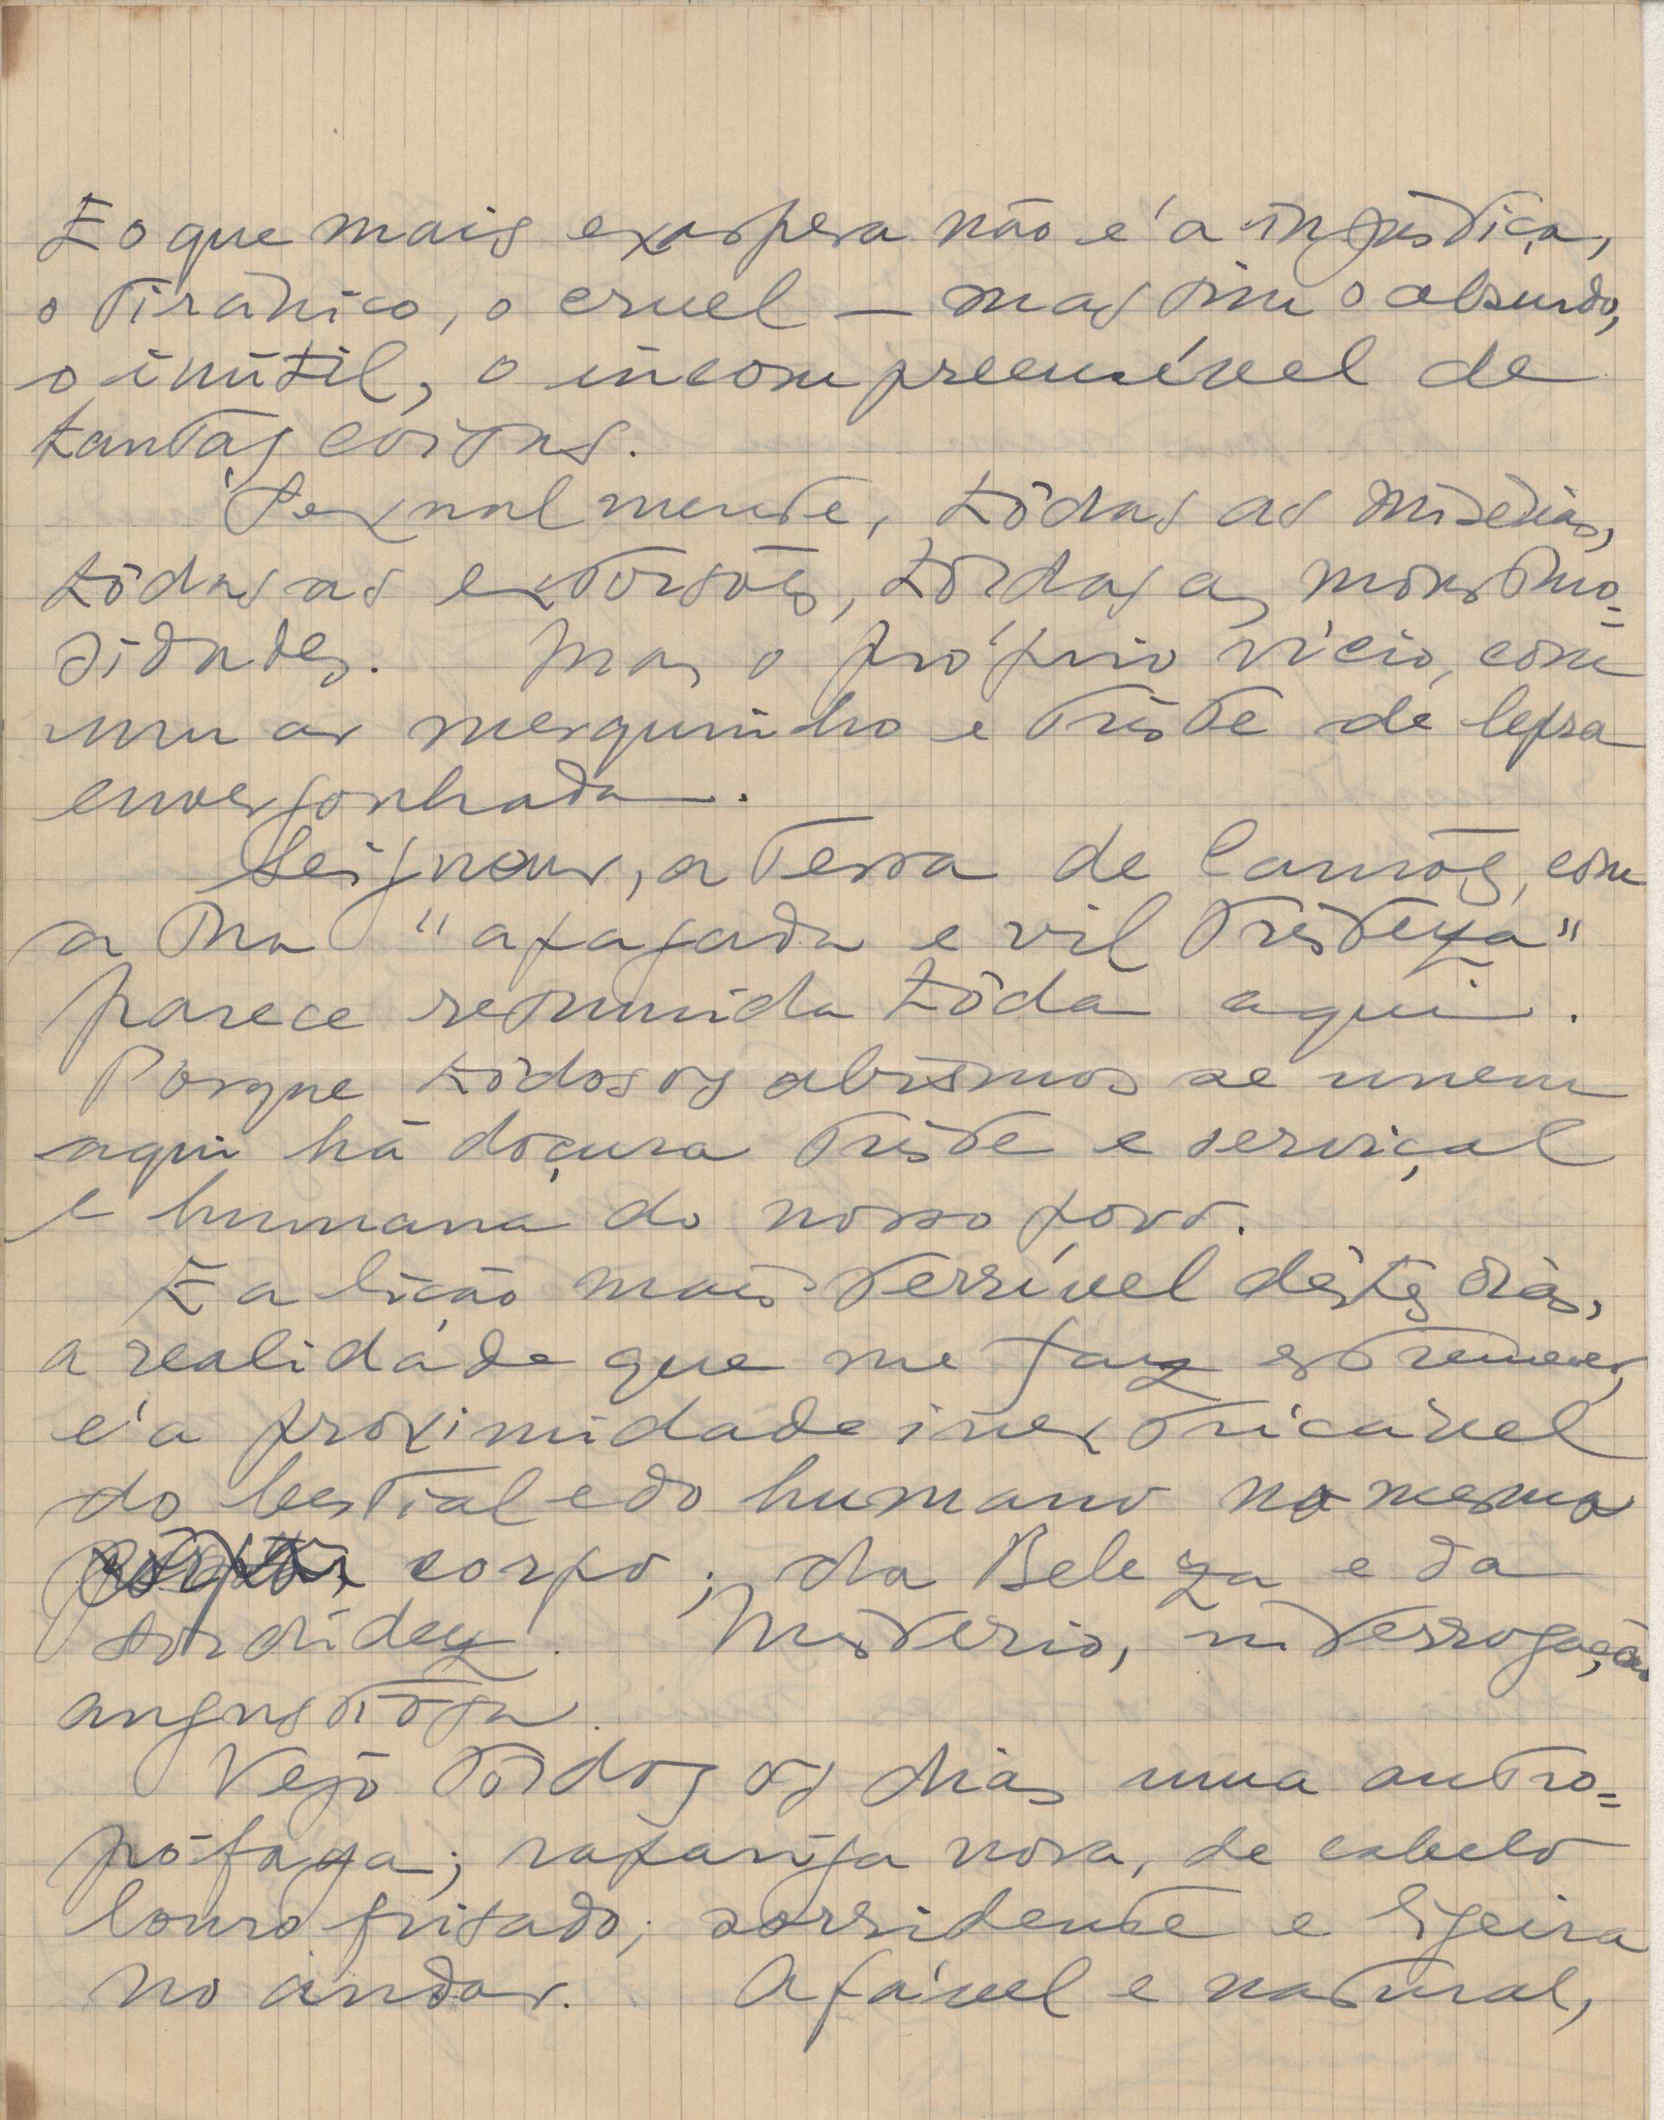 E o que mais exaspera não é a injustiça,
o tirânico, o cruel — mas sim o absurdo,
o inútil, o incompreensível de
tantas coisas.
Sexualmente, tôdas as misérias,
tôdas as extorsões, tôdas as monstruo=
sidades. Mas o próprio vício, com
um ar mesquinho e triste de lepra
envergonhada.
Seigneur, a terra de Camões, com
a sua "apagada e vil tristeza"
parece resumida tôda aqui.
Porque todos os abismos se unem
aqui há doçura triste e serviçal
e humana do nosso povo.
E a lição mais terrível dêstes dias,
a realidade que me faz estremecer,
é a proximidade inextricável
do bestial e do humano no mesmo
corpo; da Beleza e da
sordidez. Misterio, interrogação
angustiosa.
Vejo todos os dias uma antro=
pófaga; rapariga nova, de cabelo
louro frisado; sorridente e ligeira
no andar. Afável e natural,